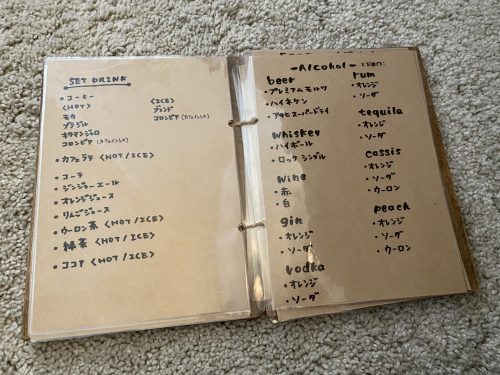 SET DRINK
・コーヒー
<HOT>
モカ
ブラジル
キリマンジャロ
コロンビア(カフェインレス)
<ICE>
ブレンド
コロンビア(カフェインレス)
・カフェラテ <HOT/ICE>
・コーラ
・ジンジャーエール
・オレンジジュース
・りんごジュース
・ウーロン茶 <HOT/ICE>
・緑茶 <HOT/ICE>
・ココア <HOT/ICE>
-Alcohol-
beer
・プレミアムモルツ
・ハイネケン
・アサヒスーパードライ
whiskey
・ハイボール
・ロック シングル
wine
・赤
・白
gin
・オレンジ
・ソーダ
vodka
・オレンジ
・ソーダ
rum
・オレンジ
・ソーダ
tequila
・オレンジ
・ソーダ
cassis
・オレンジ
・ソーダ
・ウーロン
peach
・オレンジ
・ソーダ
・ウーロン